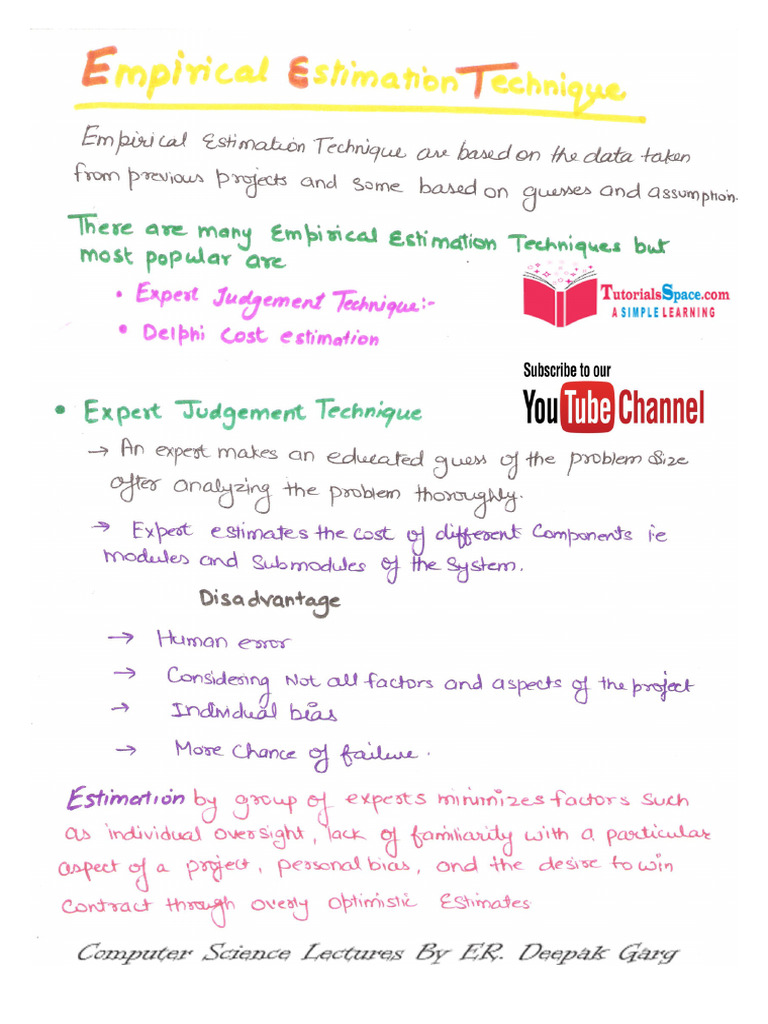 Empirical Estimation Technique
Empirical Estimation Technique are based on the data taken
from previous projects and some based on guesses and assumption.
There are many Empirical Estimation Techniques but
most popular are
• Expert Judgement Technique:-
• Delphi Cost estimation
TutorialsSpace.com
A SIMPLE LEARNING
Subscribe to our
YouTube Channel
• Expert Judgement Technique
→ An expert makes an educated guess of the problem size
after analyzing the problem thoroughly.
→ Expert estimates the cost of different Components ie
modules and submodules of the system.
Disadvantage
→ Human error
→ Considering Not all factors and aspects of the project
→ Individual bias
→ More Chance of failure.
Estimation by group of experts minimizes factors such
as individual oversight, lack of familiarity with a particular
aspect of a project, personal bias, and the desire to win
contract through overly optimistic Estimates
Computer Science Lectures By ER. Deepak Garg